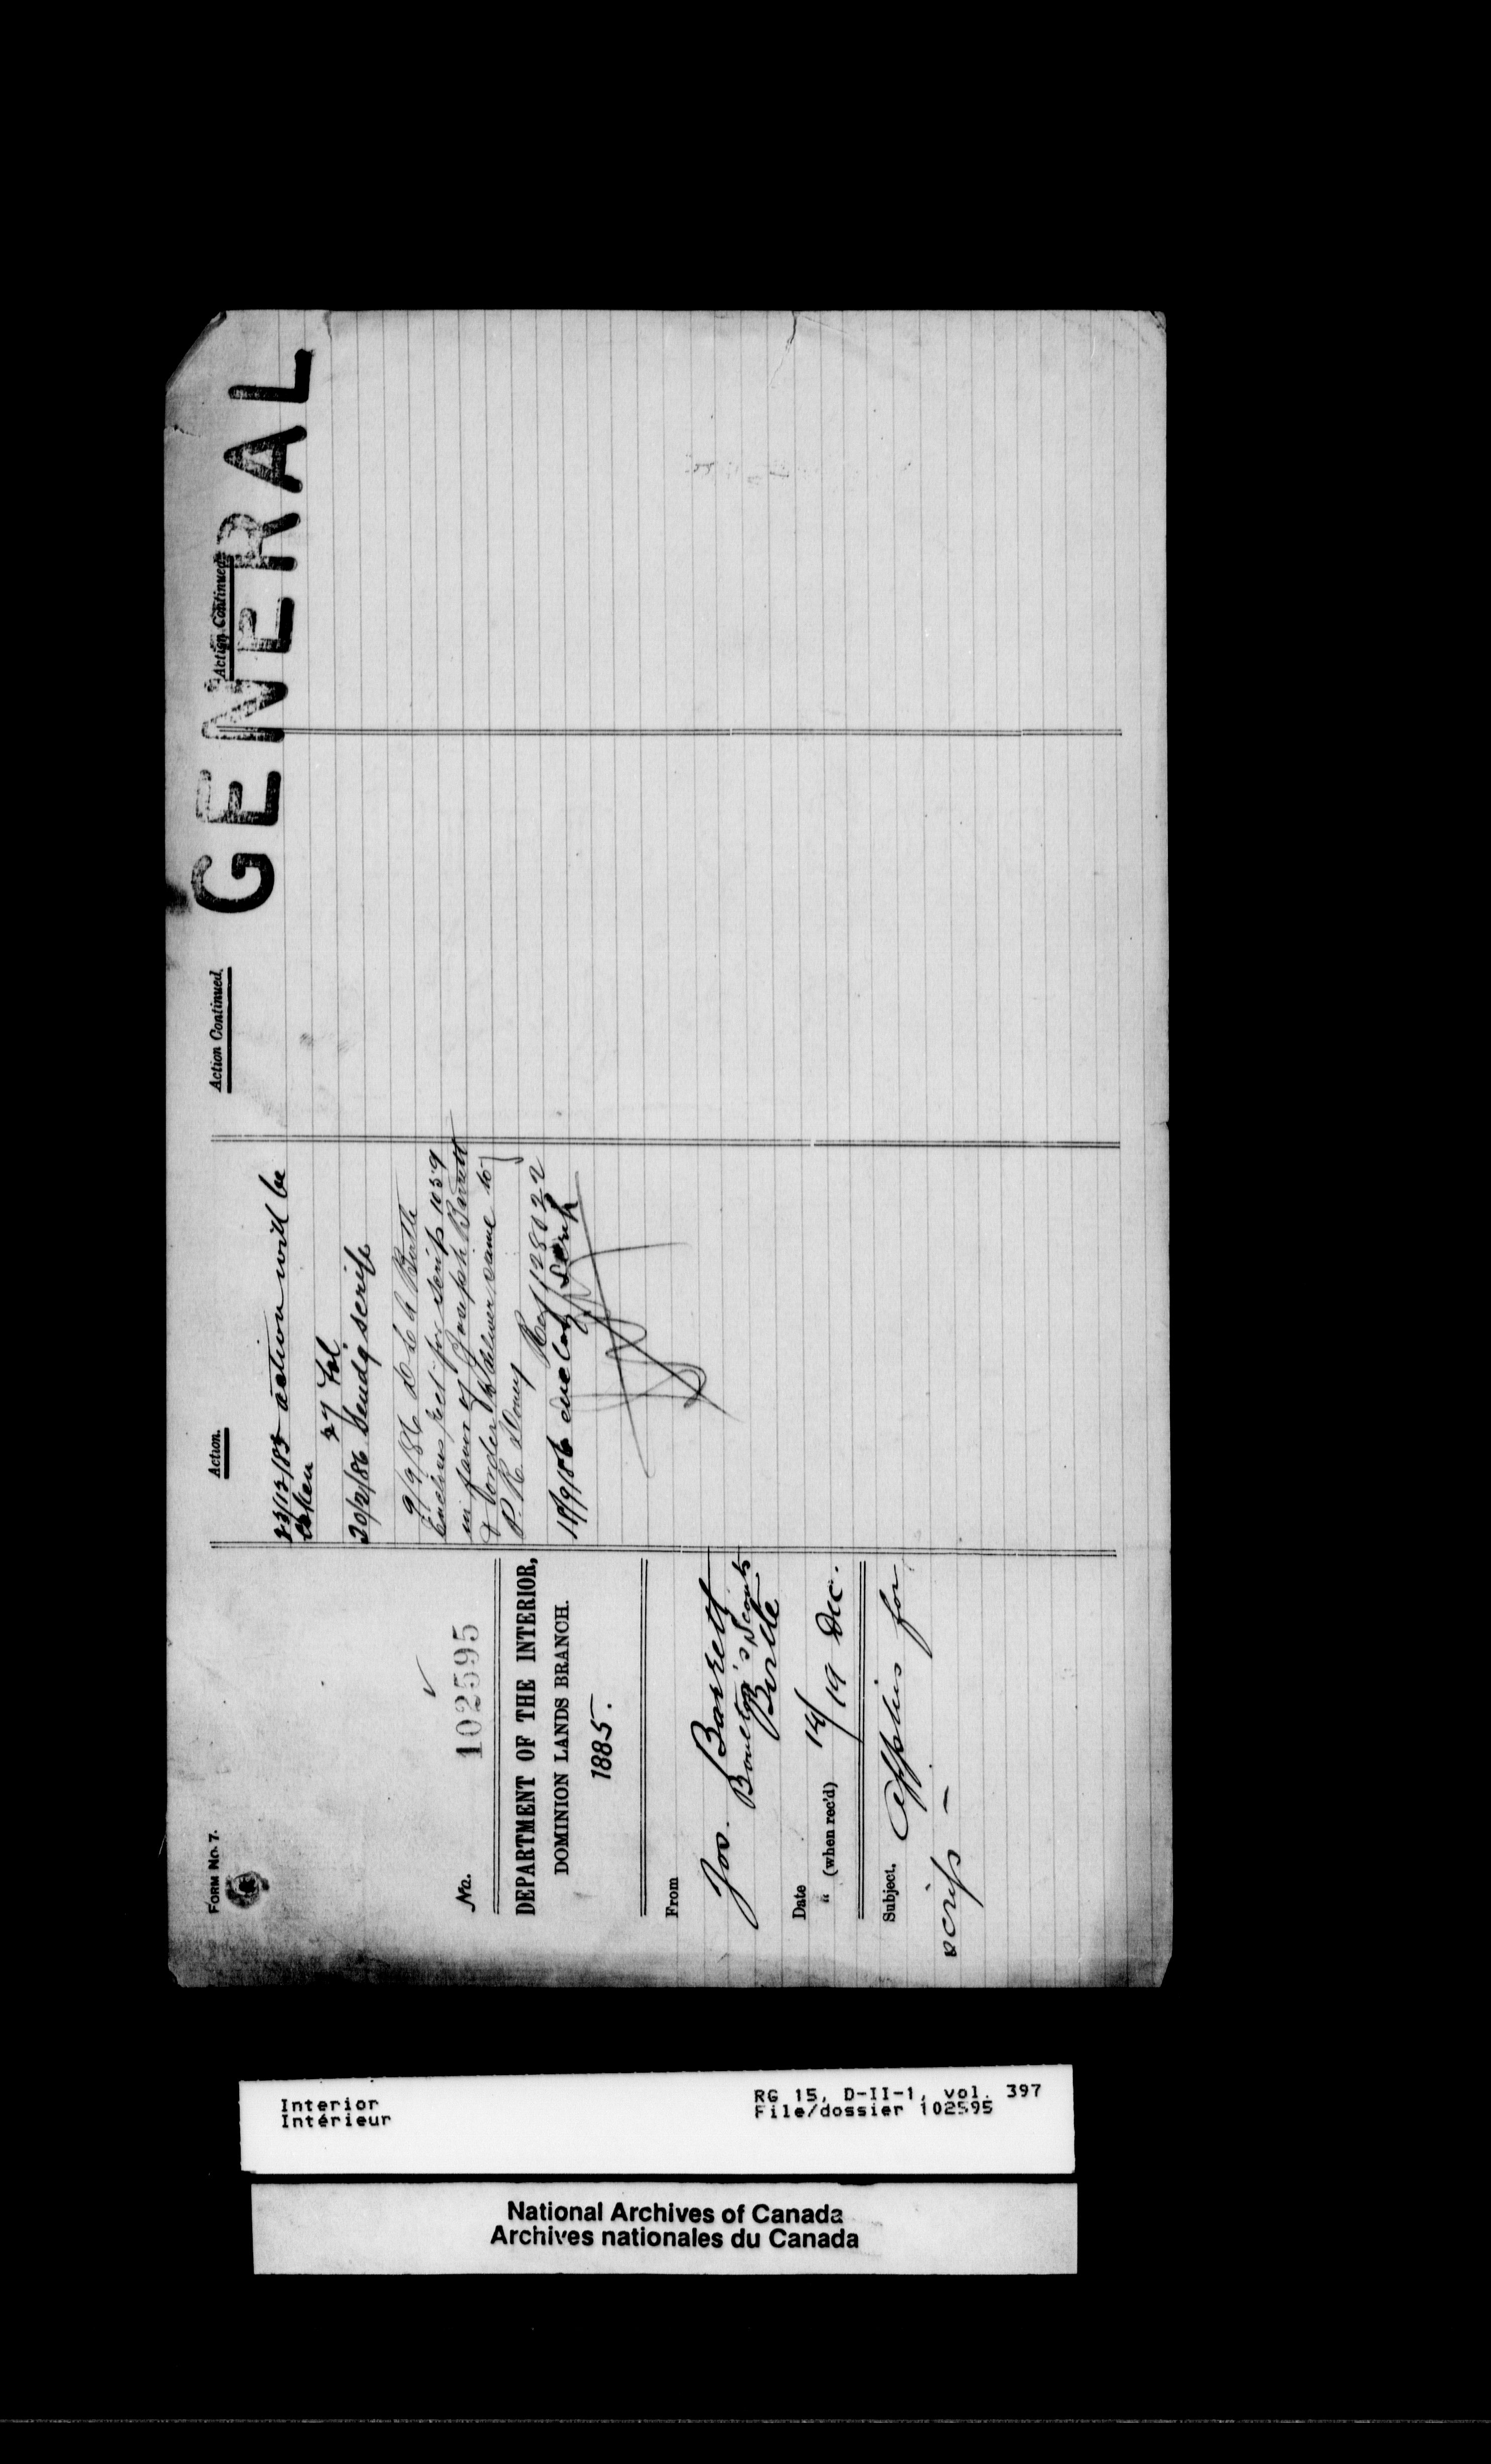 FORM No. 7.
No. 102595
DEPARTMENT OF THE INTERIOR,
DOMINION LANDS BRANCH.
1885.
From
Jos. Barrett
Boulton's Scouts
Birtle
Date 14
" (when rec'd) 19 Dec.
Subject. Applies for
scrip —
Action.
23/12/85 action will be
taken
27 Fol.
20/2/86 Sendg scrip
9/9/86 D L A Birtle
Encloses rect for scrip 1059
in favor of Joseph Barrett
& to deliver same to
P. R.
Ref 128022
18/9/86 enclog scrip
Action Continued.
Action Continued.
GENERAL
Interior
Intérieur
RG 15, D-II-1, vol. 397
File/dossier 102595
National Archives of Canada
Archives nationales du Canada